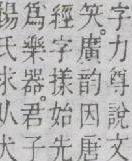 字力尊說文
笑。廣韵因唐
經字㨾始先
爲樂器。君子
楊氏求从犬